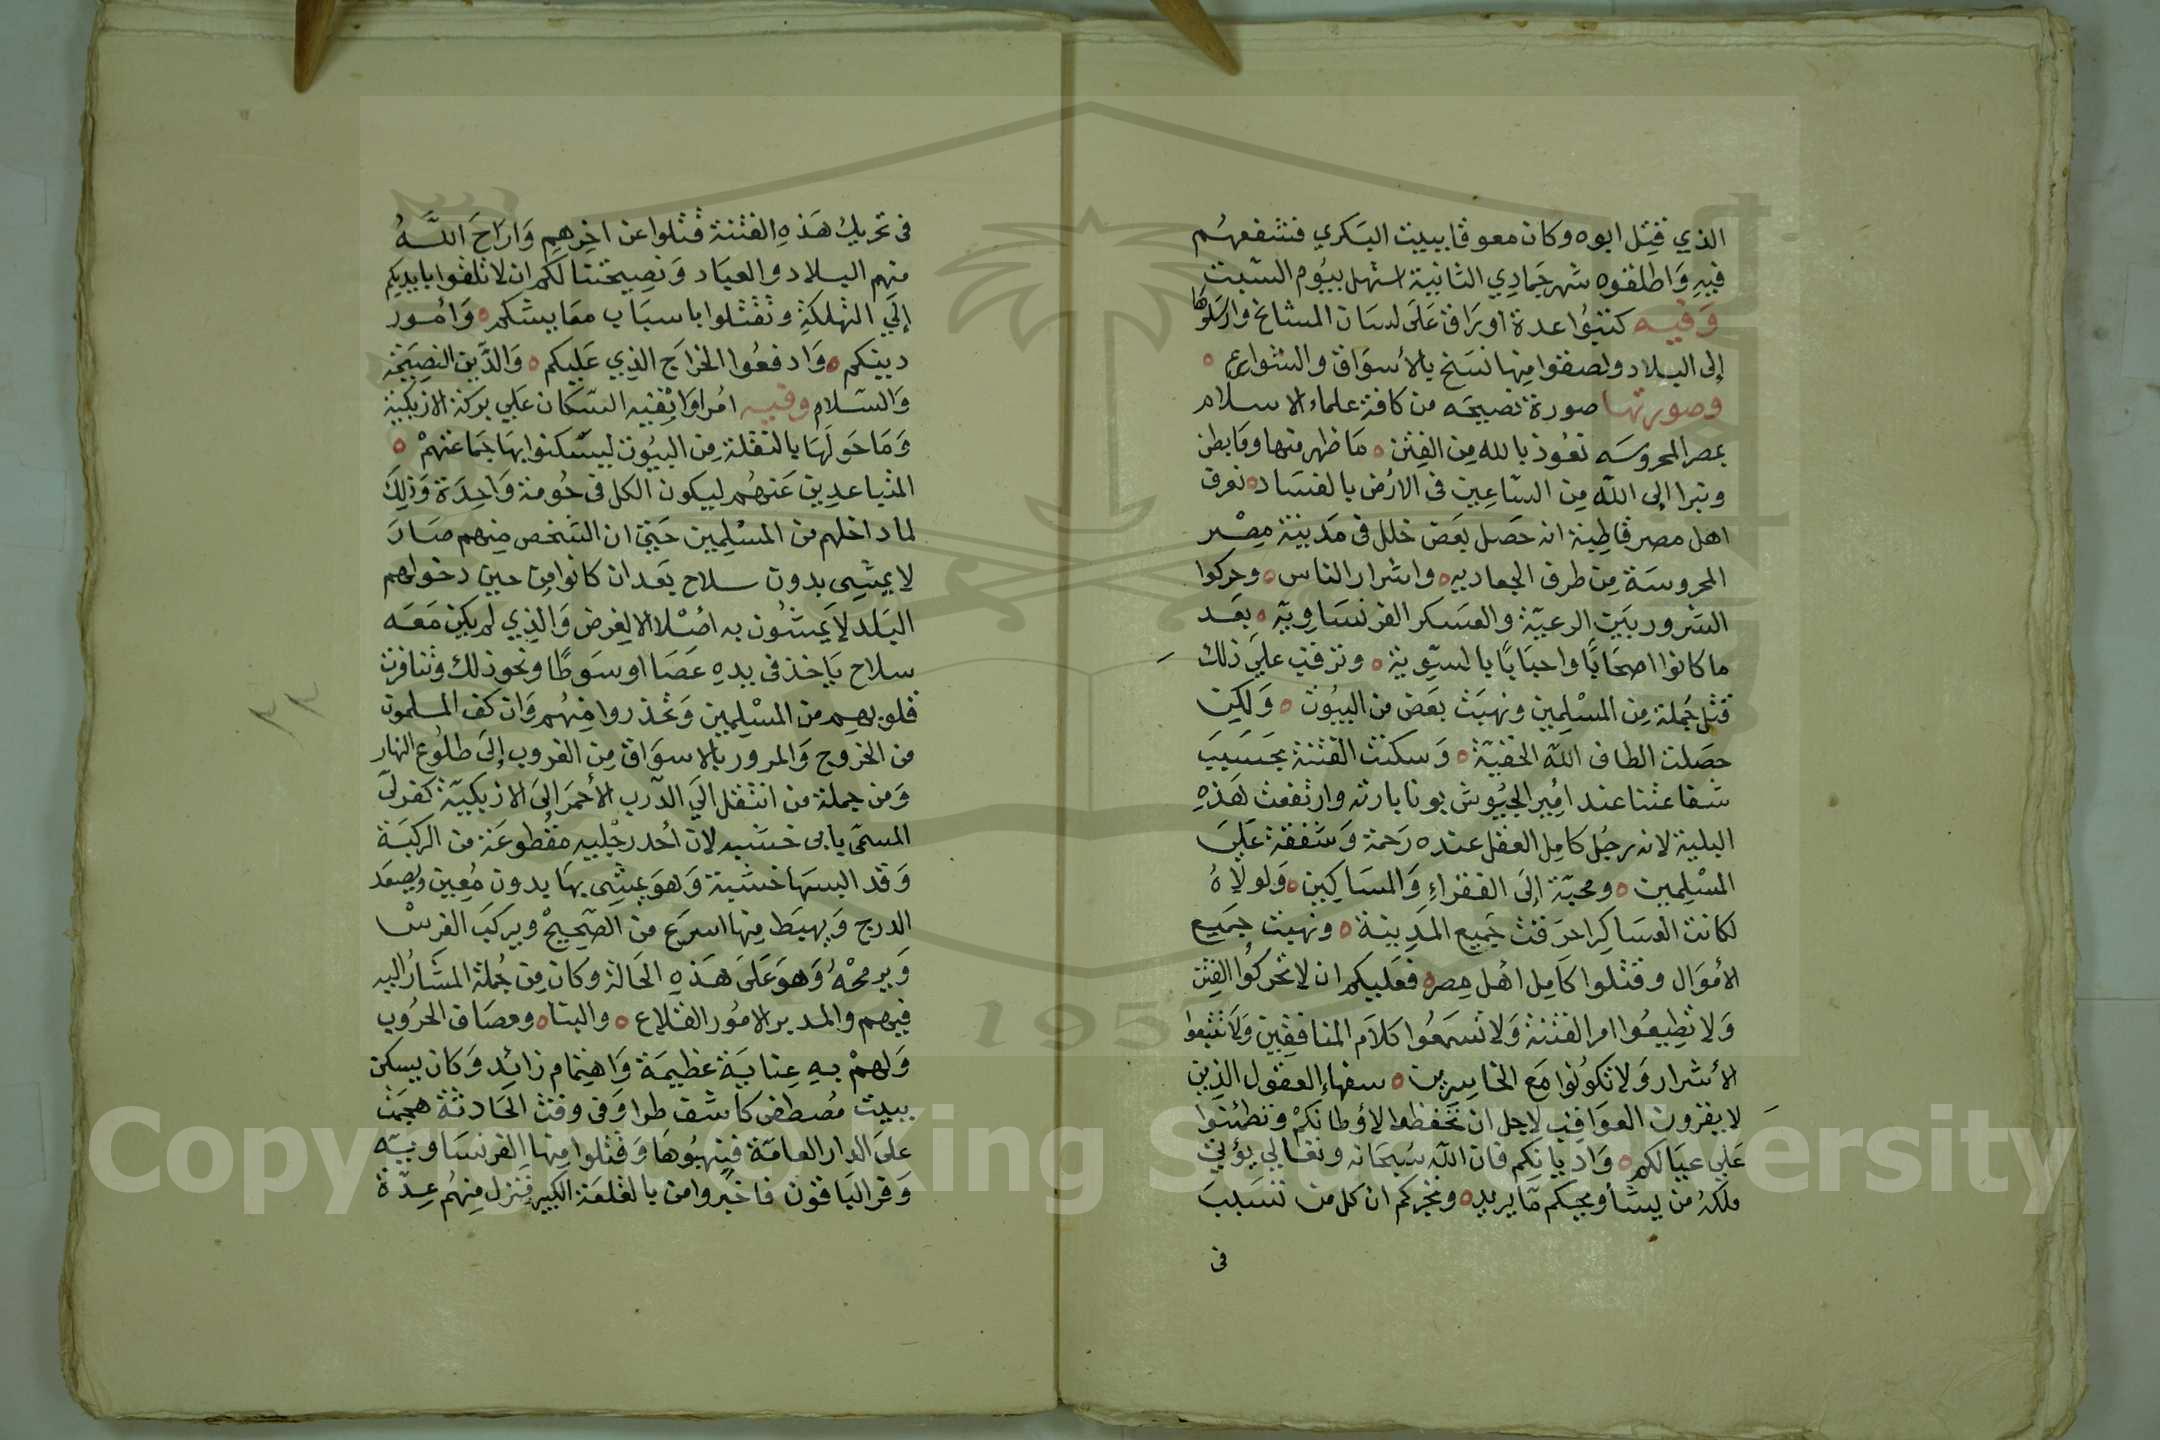 الذي قتل ابوه وكان معوقا ببيت البكري فشفعهم
فيه وَاطلقوه شهر جمادي الثانية استهل بيوم السبت
وَفيه كتبوا عدة اوراق على لسان المشايخ وارسلوها
إلى البلاد ولصقوا منها نسخ بالأسواق والشوارع
وصورتها صورة نصيحه من كافة علماء الاسلام
بمصر المحروسه نعوذ بالله من الفتن ما ظهر منها وما بطن
ونبرا إلى الله من الساعين في الارض بالفساد نعرف
اهل مصر قاطبة انه حصل بعض خلل في مدينة مصر
المحروسة من طرف الجعاديه واشرار الناس وحركوا
الشرور بين الرعية والعسكر الفرنساوية بعد
ما كانوا اصحابا واحبابا بالسوية وترتب على ذلك
قتل جملة من المسلمين ونهبت بعض من البيوت وَلكن
حصلت الطاف الله الخفية وَسكنت الفتنة بحسبب
شفاعتنا عند امير الجيوش بونابارته وارتفعت هذه
البلية لانه رجل كامل العقل عنده رحمة وَشفقة على
المسلمين ومحبة إلى الفقراء وَالمساكين وَلولاه
لكانت العساكر احرقت جميع المدينة ونهبت جميع
الأموال وقتلوا كامل أهل مصر فعليكم ان لا تحركوا الفتن
وَلا تطيعوا امر الفتنة وَلا تسمعوا كلام المنافقين وَلا تتبعوا
الأشرار وَلا تكونوا مع الخاسرين سفهاء العقول الذين
لا يقرون العواقب لاجل ان تحفظوا لأوطانكم وتطئنوا
على عيالكم وَاديانكم فان الله سبحانه وتعالى يؤتي
ملكه من يشأ ويحكم ما يريد ونخبركم ان كل من تسبب
في
في تحريك هذه الفتنة قتلوا عن اخرهم وَاراح الله
منهم البلاد والعباد وَنصيحتنا لكم ان لا تلقوا بايديكم
إلى التهلكة وتقتلوا باسباب معايشكم وَامور
دينكم وَادفعوا الخراج الذي عليكم وَالدين النصيحة
وَالسلام وفيه امروا بقية السكان على بركة الازبكية
وَما حولها بالنقلة من البيوت ليسكنوا بها جماعتهم
المتباعدين عنهم ليكون الكل في حومة وَاحدة وَذلك
لما داخلهم من المسلمين حتى ان الشخص منهم صار
لا يمشي بدون سلاح بعد ان كانوا من حين دخولهم
البلد لا يمشون به أصلا الا لغرض وَالذي لم يكن معه
سلاح ياخذ في يده عصا او سوطا ونحو ذلك وتنافرت
قلوبهم من المسلمين وَتحذروا منهم وَان كف المسلمون
من الخروج وَالمرور بالاسواق من الغروب إلى طلوع النهار
وَمن جملة من انتقل الي الدرب الأحمر إلى الازبكية كفرلي
المسمى بابي خشبه لان أحد رجليه مقطوعة من الركبة
وَقد البسها خشبة وَهو يمشي بها بدون معين ويصعد
الدرج وَيهبط منها اسرع من الصحيح ويركب الفرس
وَيرمحه وَهو على هذه الحالة وكان من جملة المشار اليه
فيهم والمدبر الامور القلاع والبناء ومصاف الحروب
وَلهم به عناية عظيمة وَاهتمام زائد وَكان يسكن
ببيت مصطفى كاشف طرا وَفي وقت الحادثة هجمت
على الدار العامة فنهبوها وَقتلوا منها الفرنساويه
وَفر الباقون فاخبروا من بالقلعة الكبير فنزل منهم عدة